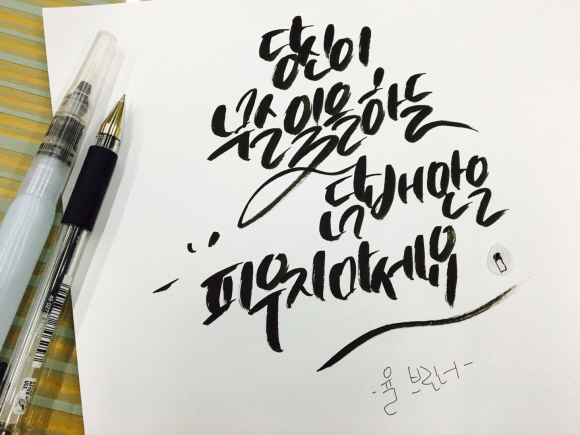 당신이
무슨 일을 하든
담배만은
피우지 마세요
-율 브린너-